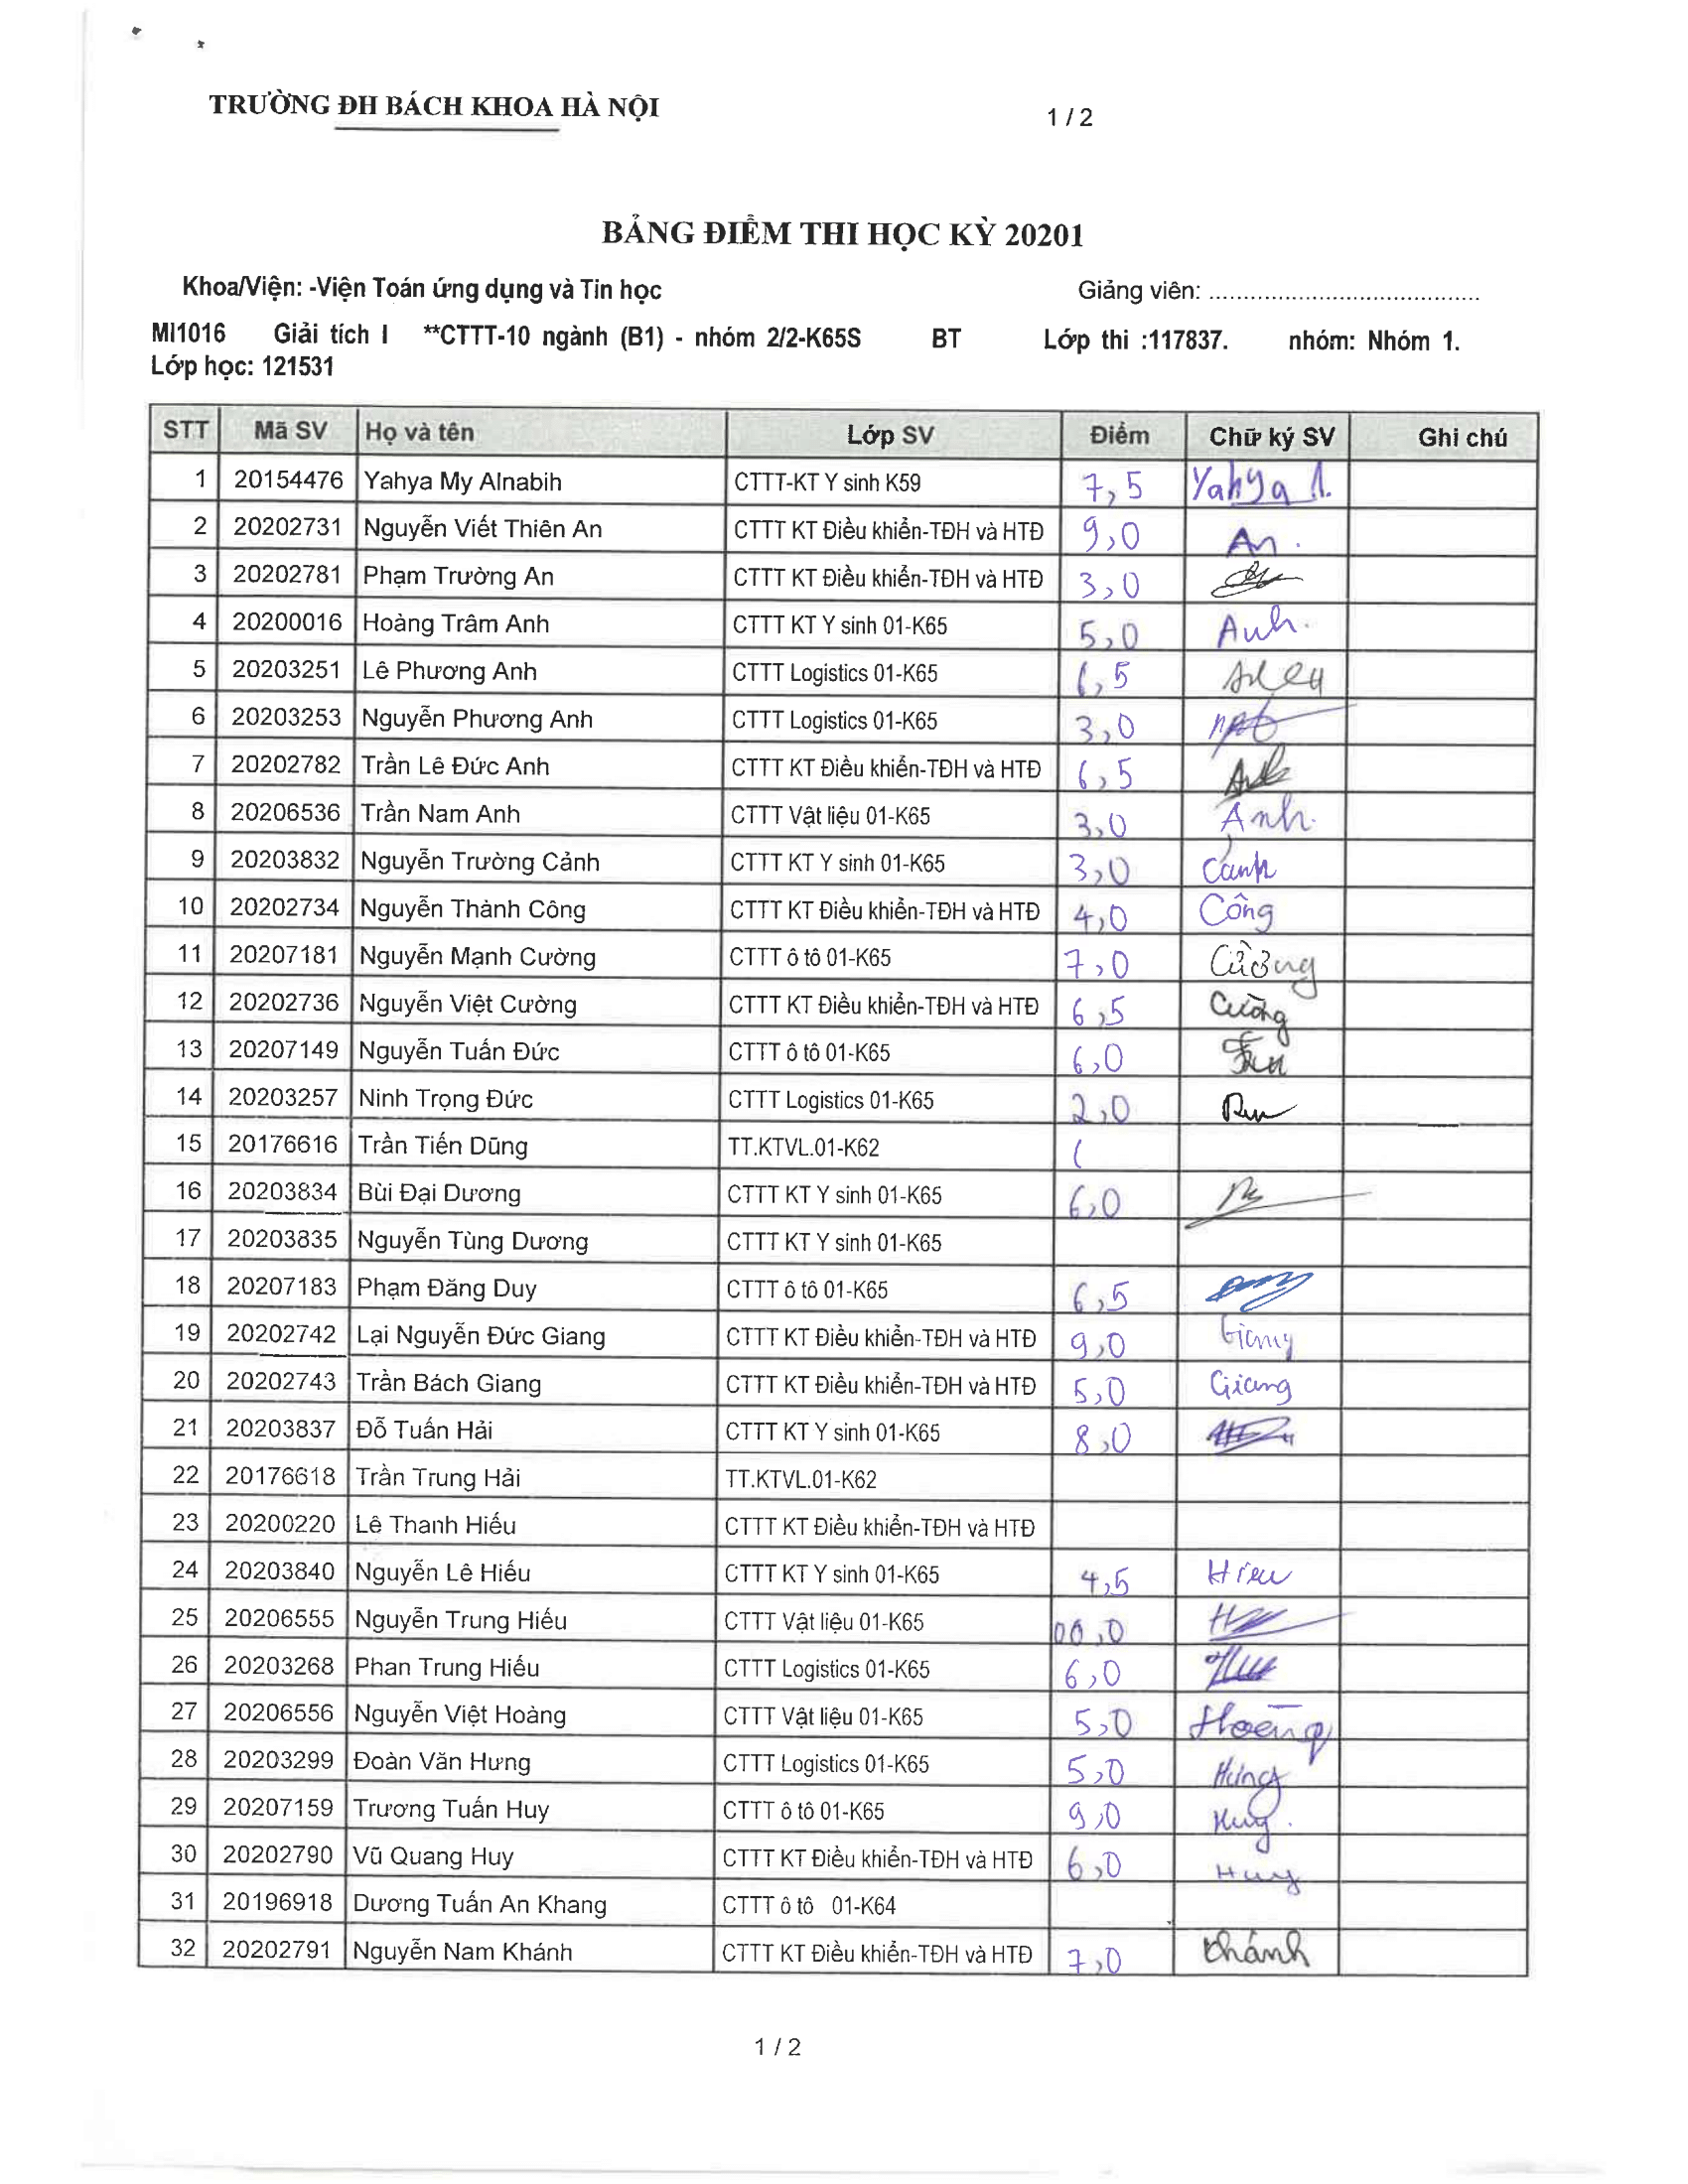 TRƯỜNG ĐH BÁCH KHOA HÀ NỘI
1 / 2
BẢNG ĐIỂM THI HỌC KỲ 20201
Khoa/Viện: -Viện Toán ứng dụng và Tin học Giảng viên: ........................................
MI1016 Giải tích I **CTTT-10 ngành (B1) - nhóm 2/2-K65S BT Lớp thi :117837. nhóm: Nhóm 1.
Lớp học: 121531
STT Mã SV Họ và tên Lớp SV Điểm Chữ ký SV Ghi chú
1 20154476 Yahya My Alnabih CTTT-KT Y sinh K59 7,5 Yahya
2 20202731 Nguyễn Viết Thiên An CTTT KT Điều khiển-TĐH và HTĐ 9,0 An.
3 20202781 Phạm Trường An CTTT KT Điều khiển-TĐH và HTĐ 3,0
4 20200016 Hoàng Trâm Anh CTTT KT Y sinh 01-K65 5,0 Anh.
5 20203251 Lê Phương Anh CTTT Logistics 01-K65 6,5
6 20203253 Nguyễn Phương Anh CTTT Logistics 01-K65 3,0
7 20202782 Trần Lê Đức Anh CTTT KT Điều khiển-TĐH và HTĐ 6,5
8 20206536 Trần Nam Anh CTTT Vật liệu 01-K65 3,0 Anh.
9 20203832 Nguyễn Trường Cảnh CTTT KT Y sinh 01-K65 3,0 Cảnh
10 20202734 Nguyễn Thành Công CTTT KT Điều khiển-TĐH và HTĐ 4,0 Công
11 20207181 Nguyễn Mạnh Cường CTTT ô tô 01-K65 7,0 Cường
12 20202736 Nguyễn Việt Cường CTTT KT Điều khiển-TĐH và HTĐ 6,5 Cường
13 20207149 Nguyễn Tuấn Đức CTTT ô tô 01-K65 6,0
14 20203257 Ninh Trọng Đức CTTT Logistics 01-K65 2,0
15 20176616 Trần Tiến Dũng TT.KTVL.01-K62
16 20203834 Bùi Đại Dương CTTT KT Y sinh 01-K65 6,0
17 20203835 Nguyễn Tùng Dương CTTT KT Y sinh 01-K65
18 20207183 Phạm Đăng Duy CTTT ô tô 01-K65 6,5
19 20202742 Lại Nguyễn Đức Giang CTTT KT Điều khiển-TĐH và HTĐ 9,0 Giang
20 20202743 Trần Bách Giang CTTT KT Điều khiển-TĐH và HTĐ 5,0 Giang
21 20203837 Đỗ Tuấn Hải CTTT KT Y sinh 01-K65 8,0
22 20176618 Trần Trung Hải TT.KTVL.01-K62
23 20200220 Lê Thanh Hiếu CTTT KT Điều khiển-TĐH và HTĐ
24 20203840 Nguyễn Lê Hiếu CTTT KT Y sinh 01-K65 4,5 Hieu
25 20206555 Nguyễn Trung Hiếu CTTT Vật liệu 01-K65 00,0
26 20203268 Phan Trung Hiếu CTTT Logistics 01-K65 6,0
27 20206556 Nguyễn Việt Hoàng CTTT Vật liệu 01-K65 5,0 Hoàng
28 20203299 Đoàn Văn Hưng CTTT Logistics 01-K65 5,0 Hưng
29 20207159 Trương Tuấn Huy CTTT ô tô 01-K65 9,0 Huy.
30 20202790 Vũ Quang Huy CTTT KT Điều khiển-TĐH và HTĐ 6,0 Huy
31 20196918 Dương Tuấn An Khang CTTT ô tô 01-K64
32 20202791 Nguyễn Nam Khánh CTTT KT Điều khiển-TĐH và HTĐ 7,0 Khánh
1 / 2